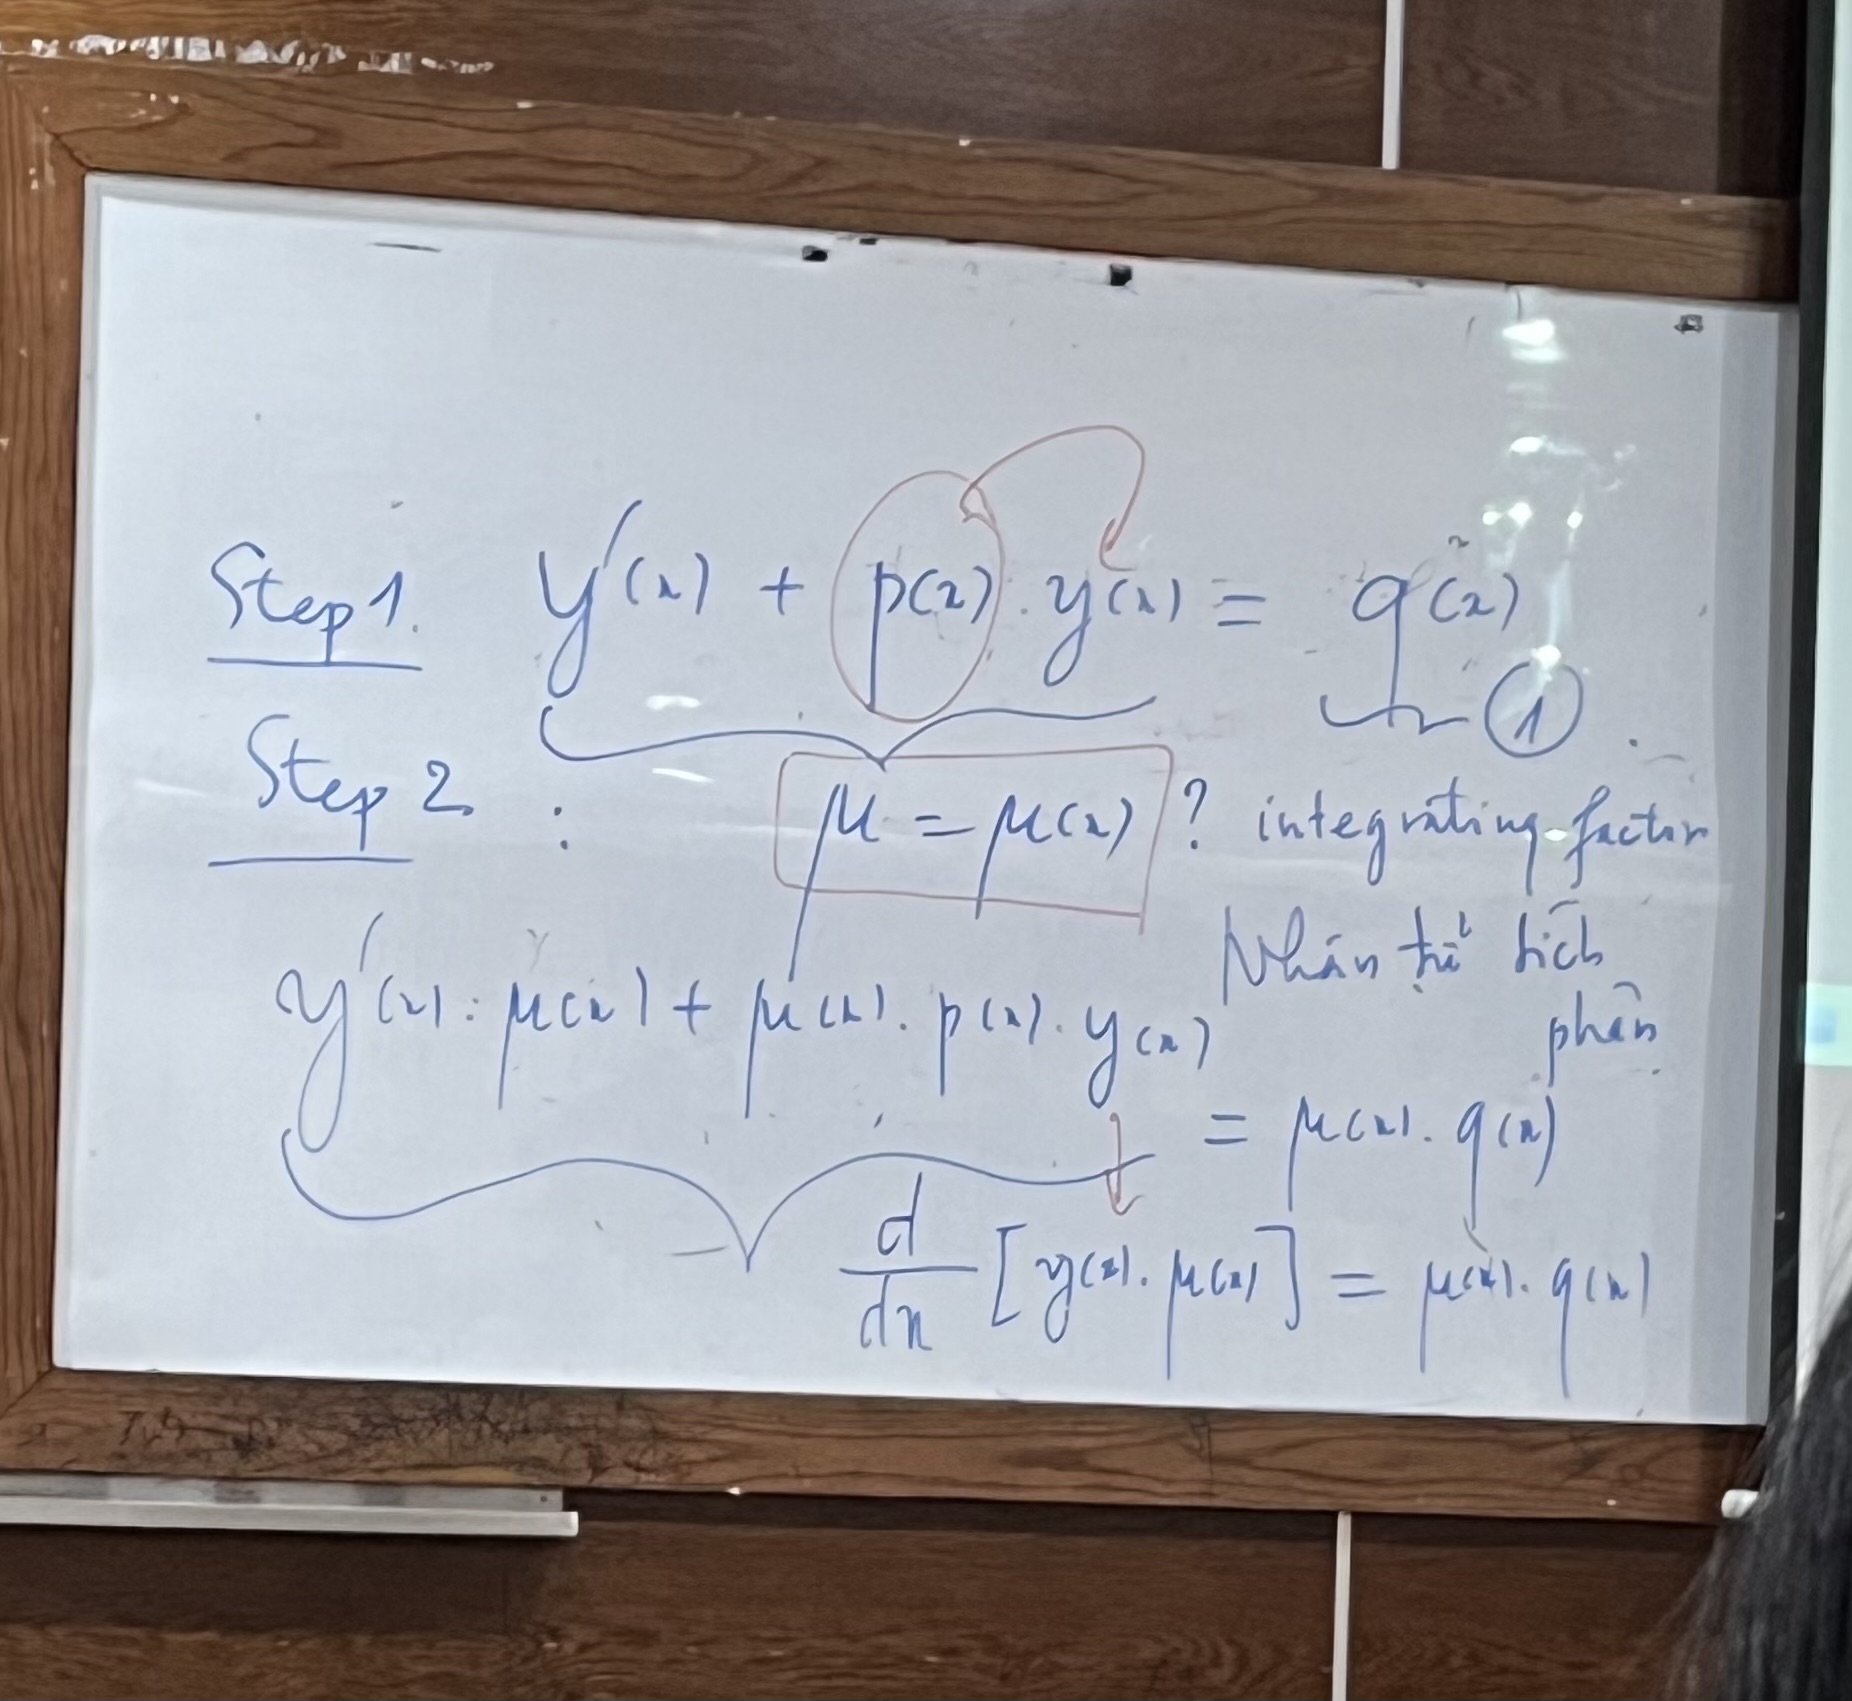 Step 1. y'(x) + p(x) . y(x) = q(x)
1
Step 2 : μ = μ(x) ? integrating factor
Nhân tử tích
phân
y'(x) . μ(x) + μ(x) . p(x) . y(x)
= μ(x) . q(x)
d/dx [y(x) . μ(x)] = μ(x) . q(x)